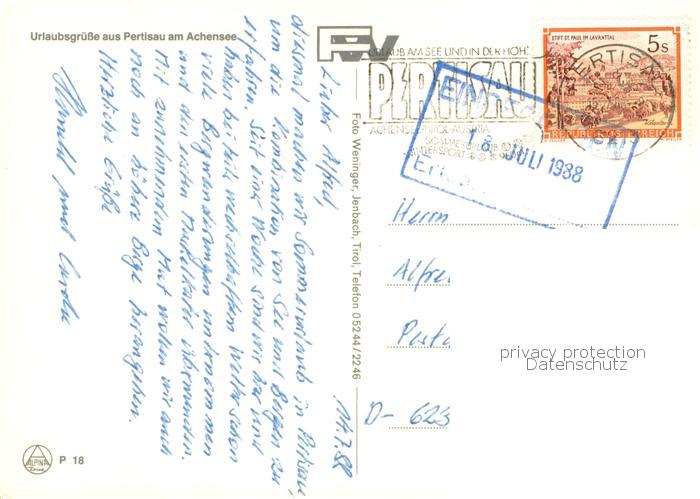 Urlaubsgrüße aus Pertisau am Achensee
14.7.88
Lieber Alfred,
diesmal machen wir Sommerurlaub in Pertisau,
um die von See und Bergen zu
Seit einer Woche sind wir hier und
haben bei wechselhaftem Wetter schon
viele Bergwanderungen unternommen
und den ersten Muskelkater überwunden.
Mit Mut wollen wir auch
noch an höhere Berge herangehen.
Herzliche Grüße
Harald und
P 18
ALPINA
Foto Weninger, Jenbach, Tirol, Telefon 05244/2246
URLAUB AM SEE UND IN DER HÖH'
PERTISAU
ACHENSEE-TIROL-AUSTRIA
SOMMERURLAUB
WINTERSPORT
STIFT ST. PAUL IM LAVANTTAL
5 S
REPUBLIK ÖSTERREICH
PERTISAU
18. JULI 1988
Herrn
Alfre
Posta
D- 623
privacy protection
Datenschutz